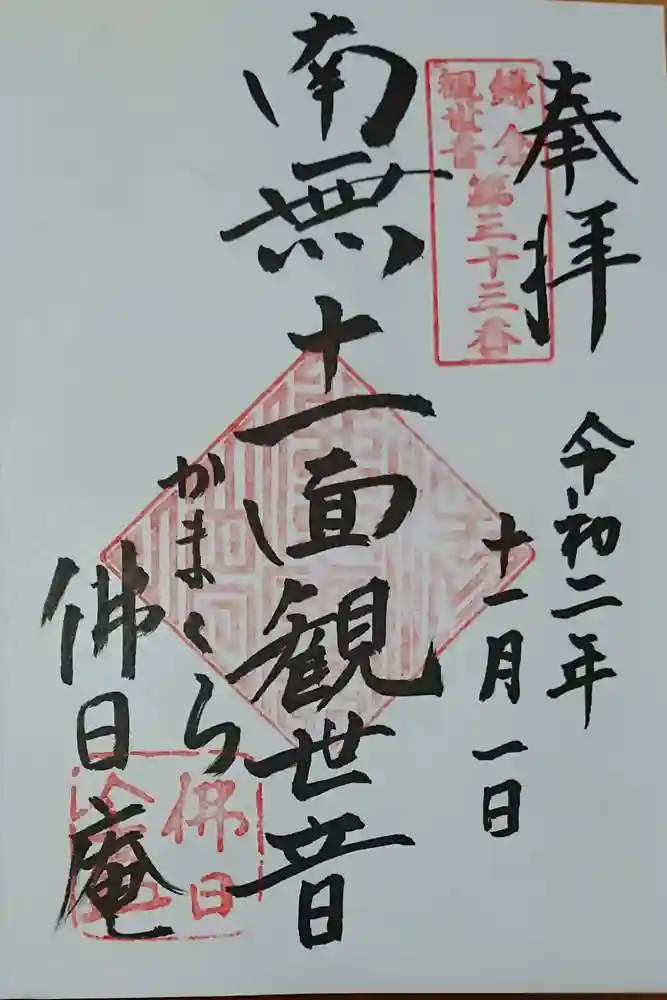 奉拝
令和二年
十一月一日
鎌倉
観世音
第三十三番
南無十一面観世音
かまくら
佛日庵
佛日